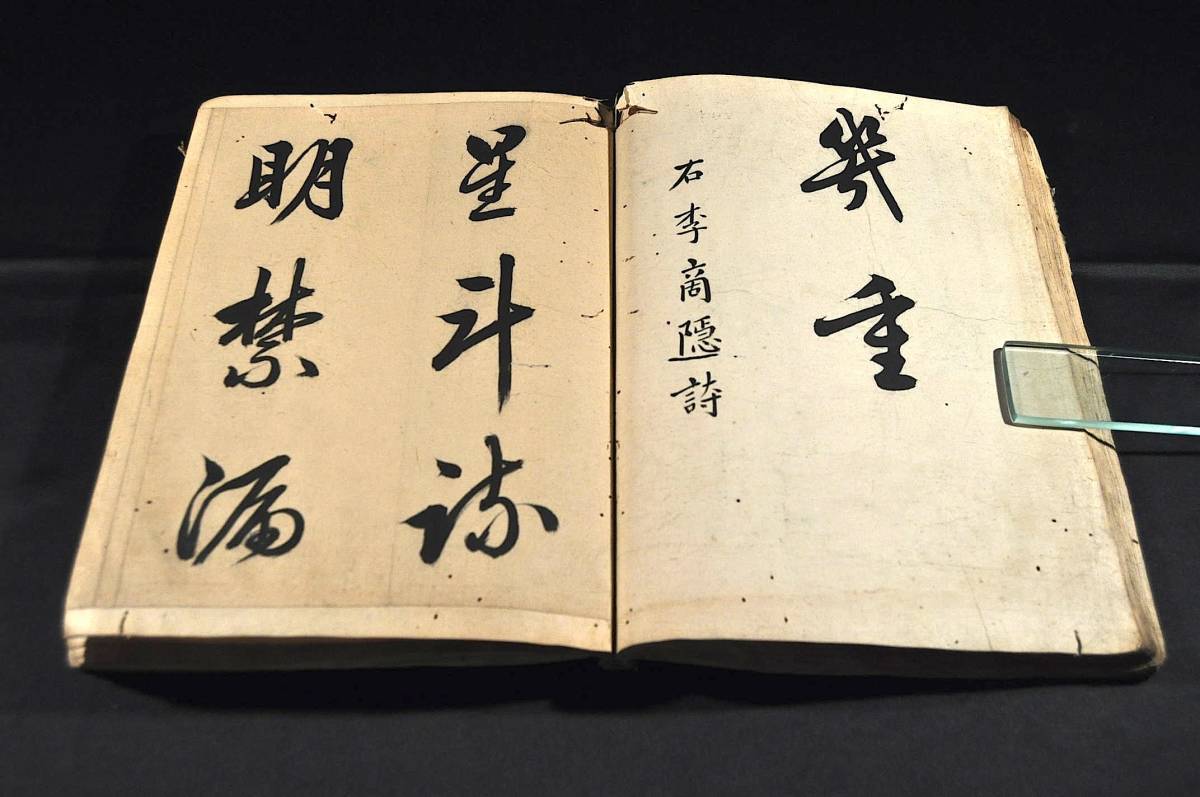 幾重
右李商隱詩
星斗疎
明禁漏